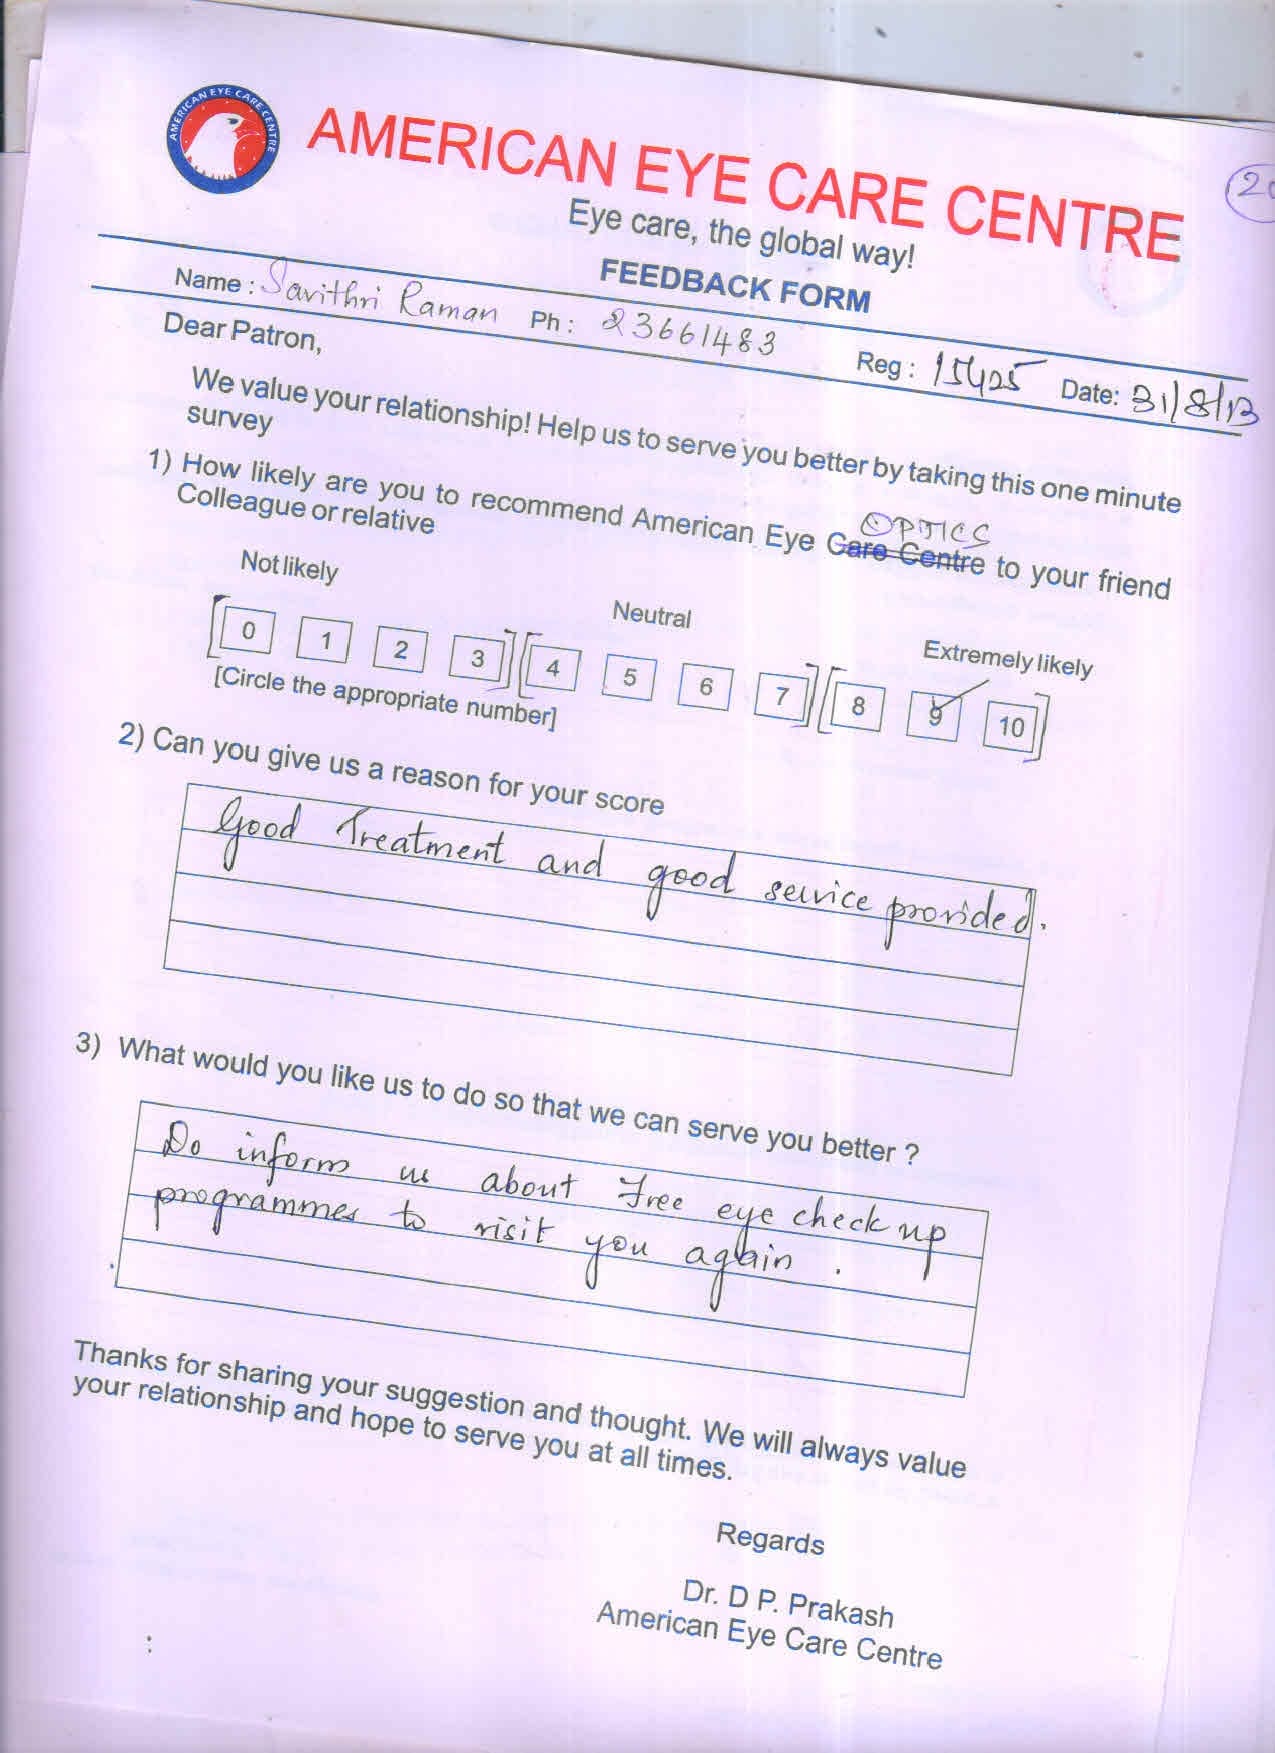 AMERICAN EYE CARE CENTRE
AMERICAN EYE CARE CENTRE
Eye care, the global way!
FEEDBACK FORM
Name : Savithri Raman Ph : 23661483 Reg : 15425 Date: 31/8/13
Dear Patron,
We value your relationship! Help us to serve you better by taking this one minute
survey
OPTICS
1) How likely are you to recommend American Eye Care Centre to your friend
Colleague or relative
Not likely Neutral Extremely likely
0 1 2 3 4 5 6 7 8 9 10
[Circle the appropriate number]
2) Can you give us a reason for your score
Good Treatment and good service provided.
3) What would you like us to do so that we can serve you better ?
Do inform us about Free eye check up
programmes to visit you again .
Thanks for sharing your suggestion and thought. We will always value
your relationship and hope to serve you at all times.
Regards
Dr. D P. Prakash
American Eye Care Centre